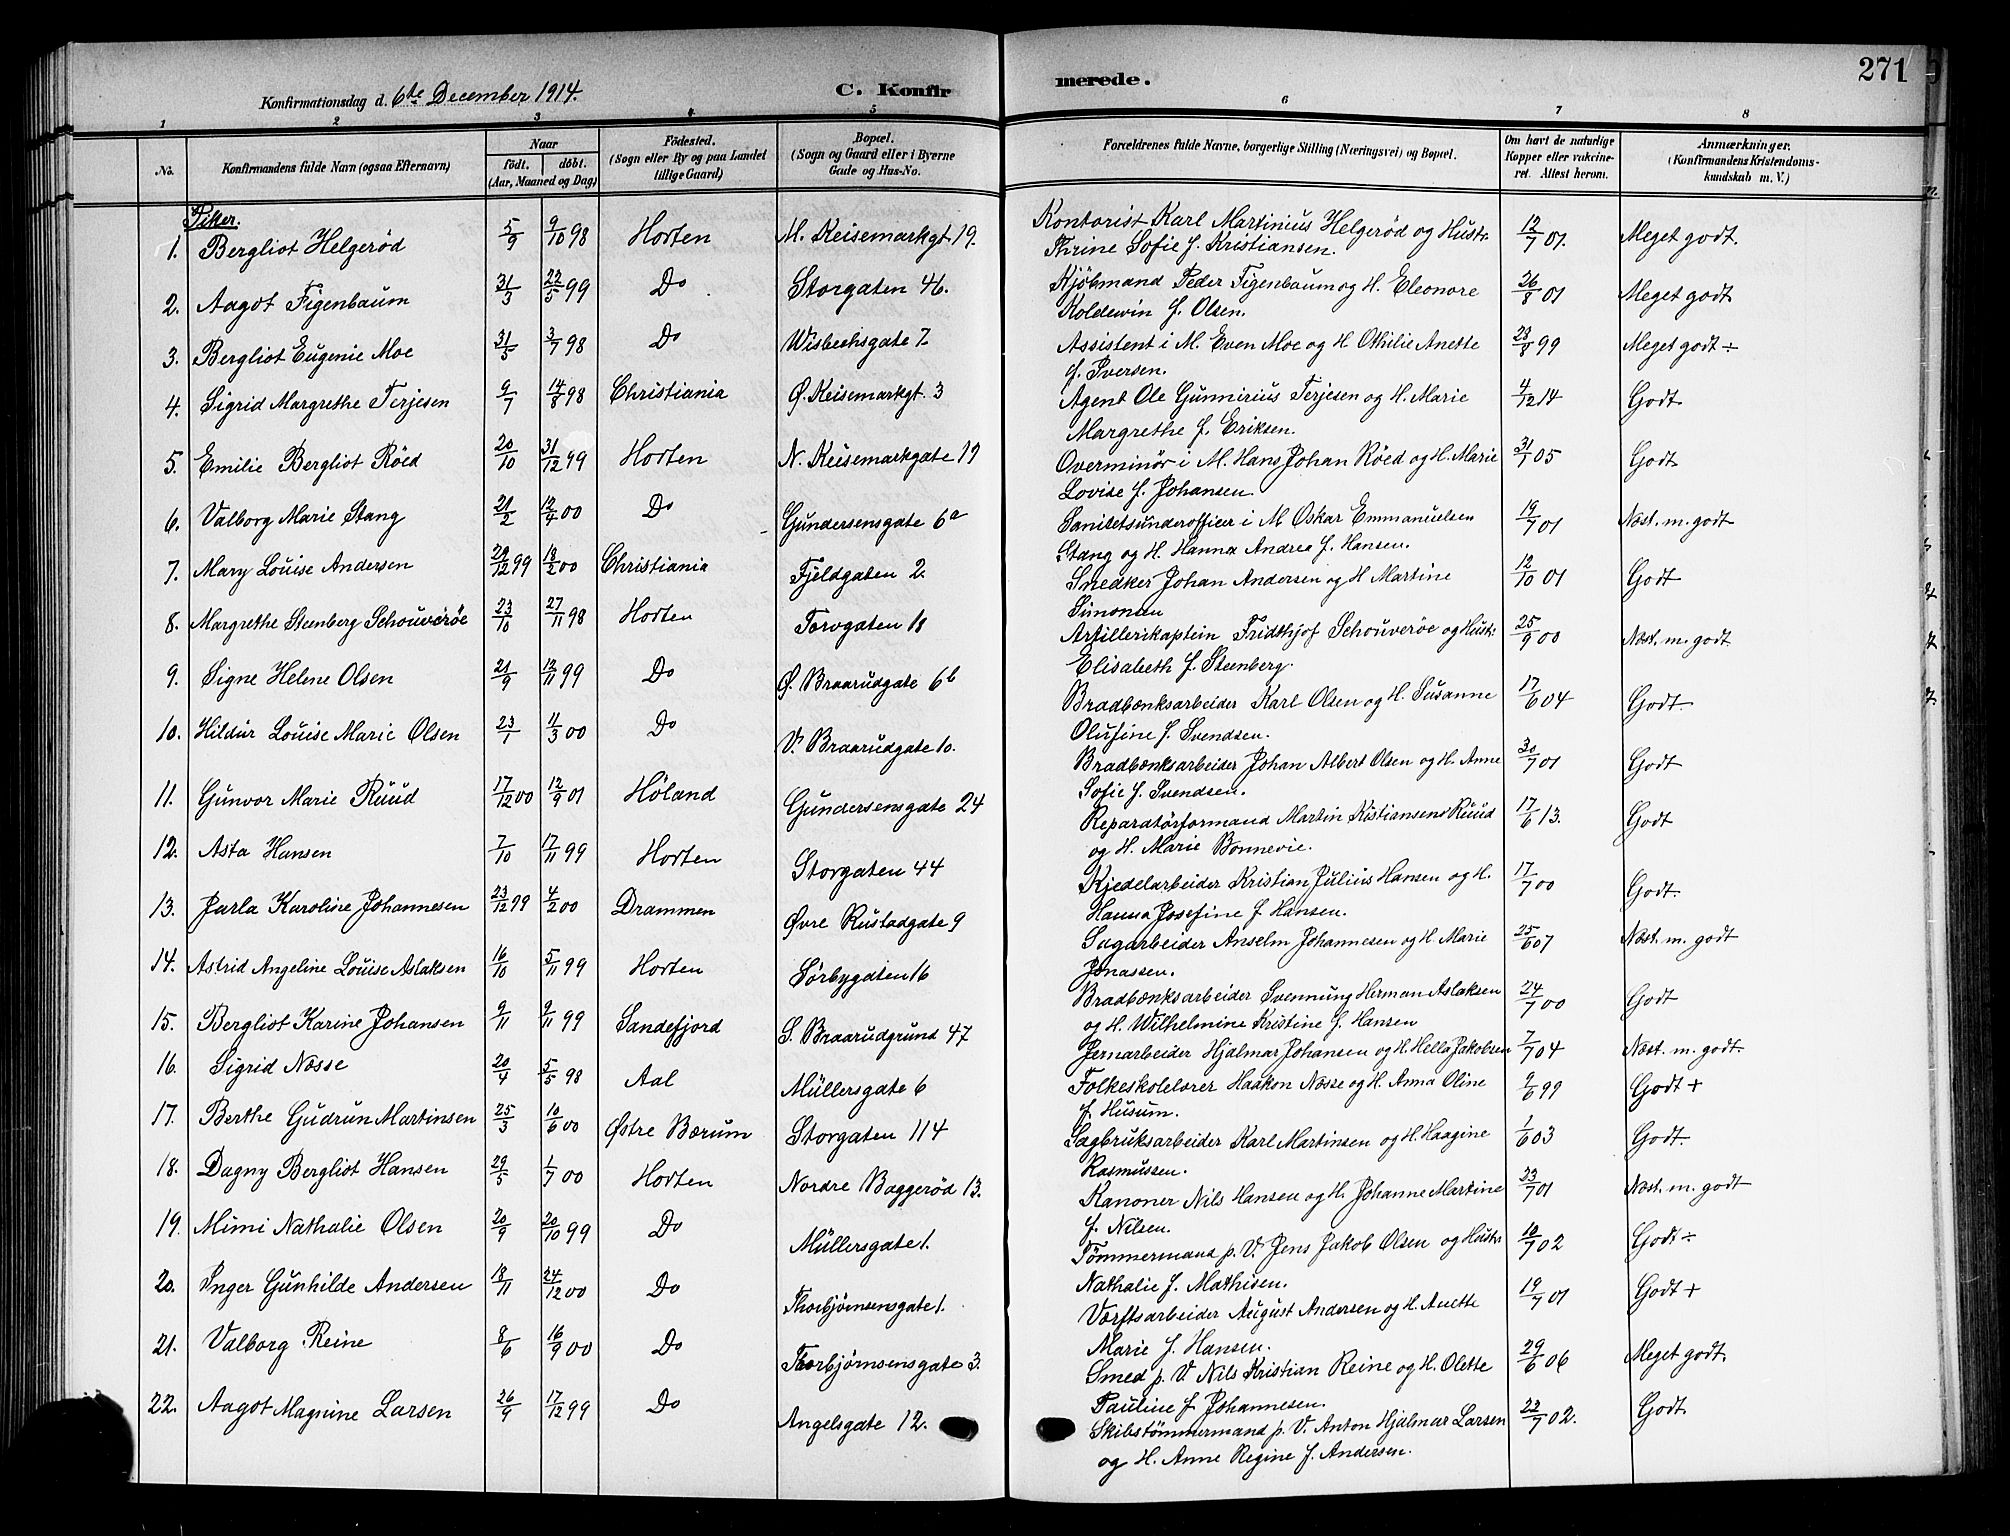 271
Konfirmationsdag d. 6te December 1914. C. Konfir merede.
1 2 3 4 5 6 7 8
No. Konfirmandens fulde Navn (ogsaa Efternavn) Naar født. døbt. (Aar, Maaned og Dag) Födested. (Sogn eller By og paa Landet tillige Gaard) Bopæl. (Sogn og Gaard eller i Byerne Gade og Hus-No. Forældrenes fulde Navne, borgerlige Stilling (Næringsvei) og Bopæl. Om havt de naturlige Kopper eller vakcineret. Attest herom. Anmærkninger. (Konfirmandens Kristendomskundskab m. V.)
Piker.
1. Bergliot Helgerød 5/9 9/10 98 Horten M. Keisemarkgt. 19. Kontorist Karl Martinius Helgerød og Hustr. 12/7 01. Meget godt.
Thrine Sofie f. Kristiansen.
2. Aagot Figenbaum 31/3 22/5 99 Do Storgaten 46. Kjöbmand Peder Figenbaum og H. Eleonore 26/8 01 Meget godt
Koldewin f. Olsen.
3. Bergliot Eugenie Moe 31/5 3/7 98 Do Wisbechsgate 7 Assistent i M. Even Moe og H Othilie Anette 23/8 99 Meget godt ÷
f. Iversen.
4. Sigrid Margrethe Terjesen 9/7 14/8 98 Christiania Ø. Keisemarkgt. 3 Agent Ole Gunnirius Terjesen og H. Marie 4/12 14 Godt
Margrethe f. Eriksen.
5. Emilie Bergliot Röed 20/10 31/12 99 Horten N. Keisemarkgate 19 Overminör i M. Hans Johan Röed og H. Marie 31/1 05 Godt
Lovise f. Johansen.
6. Valborg Marie Stang 21/2 12/4 00 Do Gundersensgate 6a Sanitetsunderofficer i M Oskar Emmanuelsen 19/7 01 Næst. m. godt
Stang og H. Hanna Andrea f. Hansen.
7. Mary Louise Andersen 29/12 99 18/2 00 Christiania Fjeldgaten 2. Snedker Johan Andersen og H Martine 12/10 01 Godt
Simonsen
8. Margrethe Steenberg Schouverøe 23/10 27/11 98 Horten Torvgaten 18 Artillerikaptein Fridthjof Schouverøe og Hustr. 25/9 00 Næst. m. godt
Elisabeth f. Steenberg.
9. Signe Helene Olsen 21/9 12/11 99 Do Ø. Braarudgate 6b Bradbænksarbeider Karl Olsen og H. Susanne 17/6 04 Godt.
Olufine f. Svendsen.
10. Hildur Louise Marie Olsen 23/1 11/3 00 Do V. Braarudgate 10. Bradbænksarbeider Johan Albert Olsen og H. Anne 30/7 01 Godt
Sofie f. Svendsen.
11. Gunvor Marie Ruud 17/12 00 12/9 01 Høland Gundersensgate 24 Reparatörformand Martin Kristiansens Ruud 17/6 13. Godt
og H. Marie Bonnevie.
12. Asta Hansen 7/10 17/11 99 Horten Storgaten 44 Kjedelarbeider Kristian Julius Hansen og H. 17/7 00 Godt.
Hanna Josefine f Hansen.
13. Jarla Karoline Johannesen 23/12 99 4/2 00 Drammen Øvre Rustadgate 9 Sagarbeider Anselm Johannesen og H. Marie 25/6 07 Næst. m. godt
Jonassen.
14. Astrid Angeline Louise Aslaksen 16/10 5/11 99 Horten Sörbygaten 16 Bradbænksarbeider Svennung Herman Aslaksen 24/7 00 Godt
og H. Wilhelmine Kristine f. Hansen
15. Bergliot Karine Johansen 9/11 9/11 99 Sandefjord S. Braarudgrund 47 Jernarbeider Hjalmar Johansen og H. Hella Jakobsen 7/7 04 Næst. m. godt.
16. Sigrid Næsse 20/4 5/5 98 Aal Müllersgate 6 Folkeskolelærer Haakon Næsse og H. Anna Oline 9/6 99 Godt +
f. Husum.
17. Berthe Gudrun Martinsen 25/3 10/6 00 Østre Bærum Storgaten 114 Sagbruksarbeider Karl Martinsen og H. Haagine 1/6 03 Godt.
Rasmussen.
18. Dagny Bergliot Hansen 29/5 1/7 00 Horten Nordre Baggerød 13. Kanoner Nils Hansen og H. Johanne Martine 23/7 01 Næst. m. godt
f. Nilsen.
19. Mimi Nathalie Olsen 20/9 20/10 99 Do Müllersgate 1. Tömmermand p. V. Jens Jakob Olsen og Hustr. 10/7 02 Godt ÷
Nathalie f. Mathisen.
20. Inger Gunhilde Andersen 18/11 24/12 00 Do Thorbjørnsensgate 1. Værftsarbeider August Andersen og H. Anette 19/7 01 Godt +
Marie f. Hansen.
21. Valborg Reine 8/6 16/9 00 Do Thorbjørnsensgate 3. Smed p. V Nils Kristian Reine og H. Olette 29/6 06 Meget godt.
Pauline f Johannesen.
22. Aagot Magnine Larsen 26/9 17/12 99 Do Angelsgate 12. Skibstömmermand p. V. Anton Hjalmar Larsen 22/7 02. Godt
og H. Anne Regine f. Andersen.